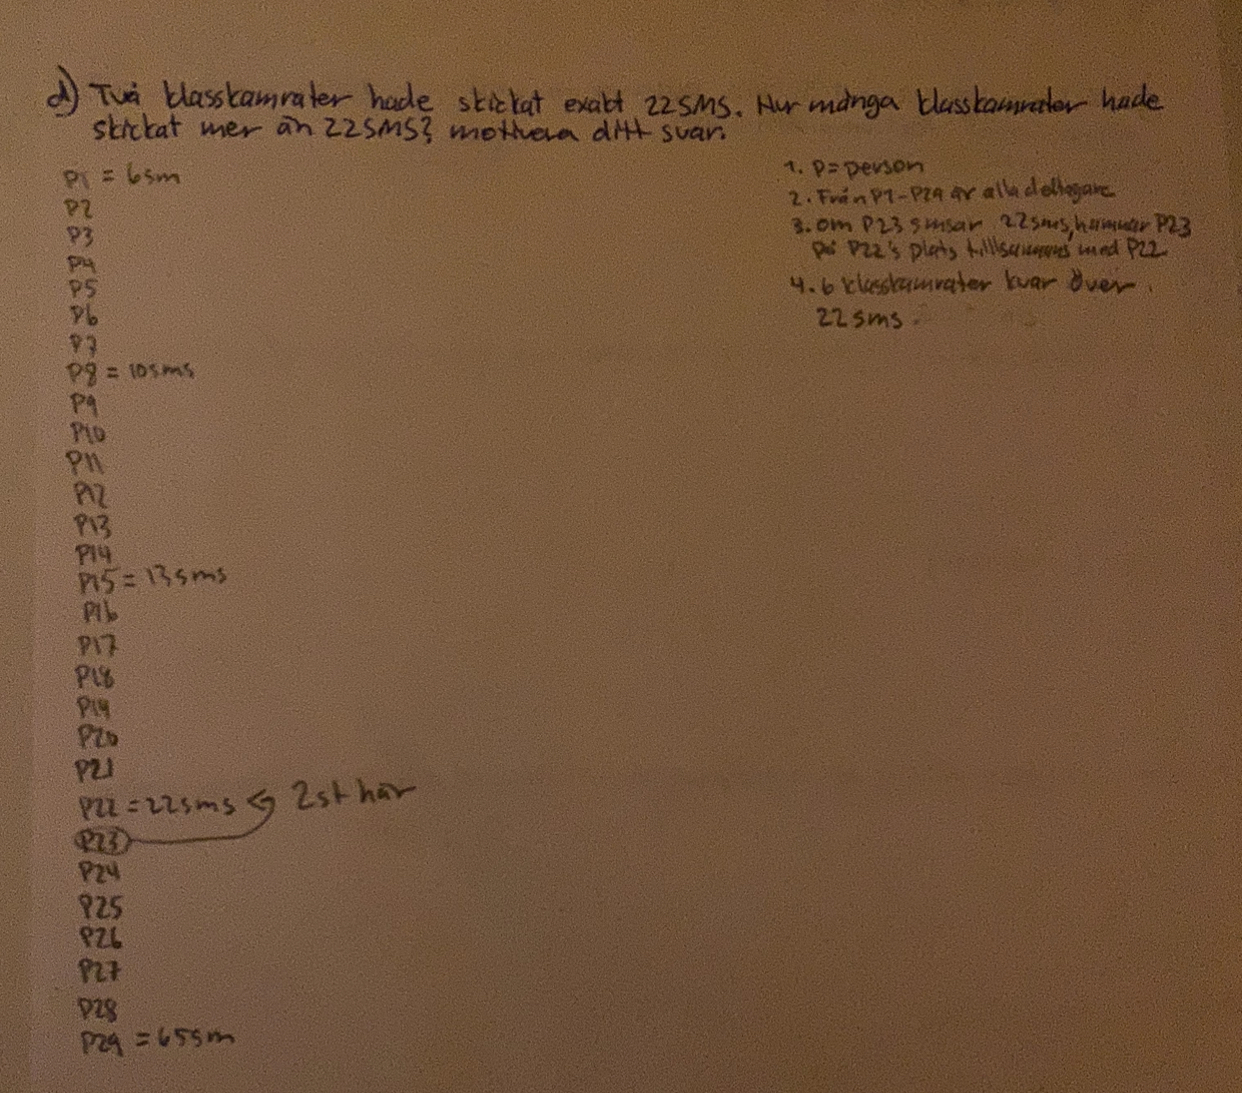 d) Två klasskamrater hade skickat exakt 22 SMS. Hur många klasskamrater hade
skickat mer än 22 SMS? motivera ditt svar.
P1 = 6sm
P2
P3
P4
P5
P6
P7
P8 = 10sms
P9
P10
P11
P12
P13
P14
P15 = 13sms
P16
P17
P18
P19
P20
P21
P22 = 22sms ← 2st här
P23
P24
P25
P26
P27
P28
P29 = 65sm
1. P = person
2. Från P1-P29 är alla deltagare
3. om P23 smsar 22sms, hamnar P23
på P22's plats tillsammans med P22
4. 6 klasskamrater kvar över
22 sms.